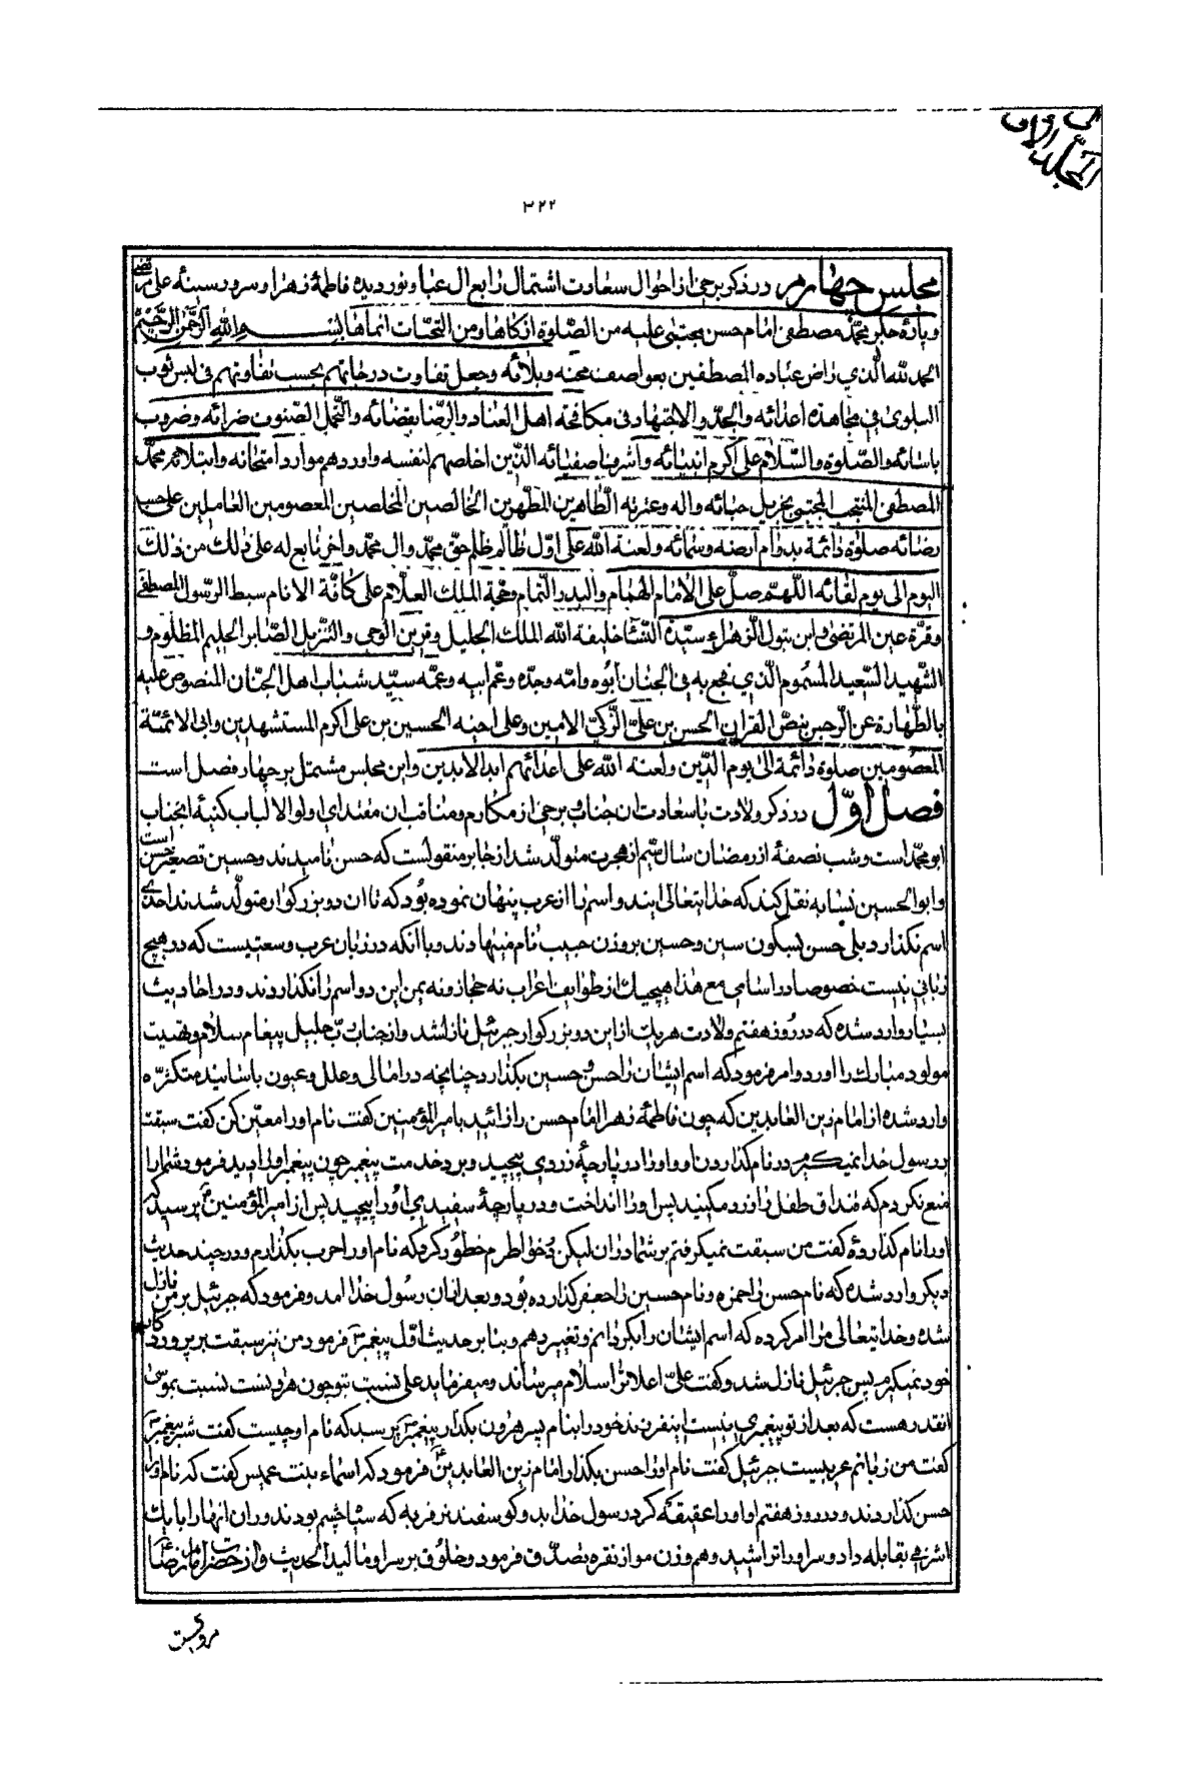 المجلد الاول
۳۲۲
مجلس چهارم در ذکر برخی از احوال سعادت اشتمال رابع ال عبا و نور دیده فاطمهٔ زهرا و سرور سینه علی مرتضی
و پارهٔ جکر محمد مصطفی امام حسن مجتبی علیه من الصلوة ازکاها و من التحیات انماها بسم الله الرحمن الرحیم
الحمد لله الذی راض عباده المصطفین بعواصف محنه و بلائه و جعل تفاوت درجاتهم بحسب تفاوتهم فی لبس ثوب
البلوی فی مجاهدة اعدائه والجد والاجتهاد فی مکافحة اهل العناد والرضا بقضائه والتحمل لصنوف ضرائه و ضروب
باسائه والصلوة والسلام علی اکرم انبیائه واشرف اصفیائه الذین اخلصهم لنفسه واوردهم موارد امتحانه وابتلائه محمد
المصطفی المنتجب المجتبی بجزیل حبائه واله وعترته الطاهرین المطهرین الخالصین المخلصین المعصومین العاملین علی حسب
رضائه صلوة دائمة بدوام ارضه وسمائه ولعنة الله علی اول ظالم ظلم حق محمد وال محمد واخر تابع له علی ذلک من ذلک
الیوم الی یوم لقائه اللهم صل علی الامام الهمام والبدر التمام وحجة الملک العلام علی کافة الانام سبط الرسول المصطفی
وقرة عین المرتضی وابن بتول الزهراء سیدة النساء خلیفة الله الملک الجلیل وقرین الوحی والتنزیل الصابر الحلیم المظلوم و
الشهید السعید المسموم الذی فجع به فی الجنان ابوه وامه وجده وعم ابیه وعمه سید شباب اهل الجنان المنصوص علیه
بالطهارة عن الرجس بنص القران الحسن بن علی الزکی الامین وعلی اخیه الحسین بن علی اکرم المستشهدین وابی الائمة
المعصومین صلوة دائمة الی یوم الدین ولعنة الله علی اعدائهم ابد الابدین واین مجلس مشتمل بر چهار فصل است
فصل اول در ذکر ولادت با سعادت ان جناب و برخی از مکارم و مناقب ان مقتدای اولو الالباب کنیهٔ انجناب
ابو محمد است و شب نصفهٔ از رمضان سال سیم از هجرت متولد شد از جابر منقولست که حسن نامیدند و حسین تصغیر حسن است
و ابو الحسین نسابه نقل کند که خدا یتعالی ایندو اسم را از عرب پنهان نموده بود که تا ان دو بزرکوار متولد شدند احدی
اسم نکذارد بلی حسن بسکون سین و حسین بر وزن حبیب نام مینهادند و با آنکه در زبان عرب وسعتیست که در هیچ
زبانی نیست خصوصا در اسامی مع هذا هیچیک از طوایف اعراب نه حجاز و نه یمن این دو اسم را نکذاردند و در احادیث
بسیار وارد شده که در روز هفتم ولادت هریک از این دو بزرکوار جبرئیل نازل شد و از جناب رب جلیل پیغام سلام و تهنیت
مولود مبارک را اورد و امر فرمود که اسم ایشان را حسن و حسین بکذارد چنانچه در امالی و علل و عیون باسانید متکثره
وارد شده از امام زین العابدین که چون فاطمهٔ زهرا امام حسن را زائید بامیر المؤمنین کفت نام او را معین کن کفت سبقت
بر رسول خدا نمیکیرم در نام کذاردن او و او را در پارچهٔ زردی پیچید و برد خدمت پیغمبر چون پیغمبر او را دید فرمود شما را
منع نکردم که قنداق طفل را زرد مکنید پس او را انداخت و در پارچهٔ سفیدی او را پیچید پس از امیر المؤمنین پرسید که
او را نام کذاردهٔ کفت من سبقت نمیکرفتم بر شما در ان لیکن بخواطرم خطور کرد که نام او را حرب بکذارم و در چند حدیث
دیکر وارد شده که نام حسن را حمزه و نام حسین را جعفر کذارده بود و بعد از ان رسول خدا امد و فرمود که جبرئیل بر من نازل
شده و خدا یتعالی مرا امر کرده که اسم ایشان را بکردانم و تغییر دهم و بنا بر حدیث اول پیغمبر فرمود من نیز سبقت بر پروردکار
خود نمیکیرم پس جبرئیل نازل شد و کفت علی اعلا ترا سلام میرساند و میفرماید علی نسبت بتو چون هرونست نسبت بموسی
انقدر هست که بعد از تو پیغمبری نیست اینفرزند خود را بنام پسر هرون بکذار پیغمبر پرسید که نام او چیست کفت شبر پیغمبر
کفت من زبانم عربیست جبرئیل کفت نام او را حسن بکذار امام زین العابدین فرمود که اسماء بنت عمیس کفت که نام او را
حسن کذاردند و در روز هفتم او را عقیقه کرد رسول خدا بدو کوسفند نر فربه که سیاه چشم بودند و ران انها را با یک
اشرفی بقابله داد و سر او را تراشید و هم وزن مو از نقره تصدق فرمود و خلوق بر سر او مالید الحدیث و از حضرت امام رضا
مرویست